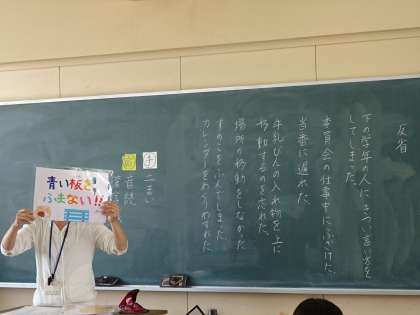 反省
下の学年の人に、きつい言い方を
してしまった。
委員会の仕事中にふざけた。
当番に遅れた。
牛乳びんの入れ物を上に
移動するのを忘れた。
場所の移動をしなかった
すのこをふんでしまった
カレンダーをめくりわすれた
手
二まい
音読
青い板を
ふまない!!